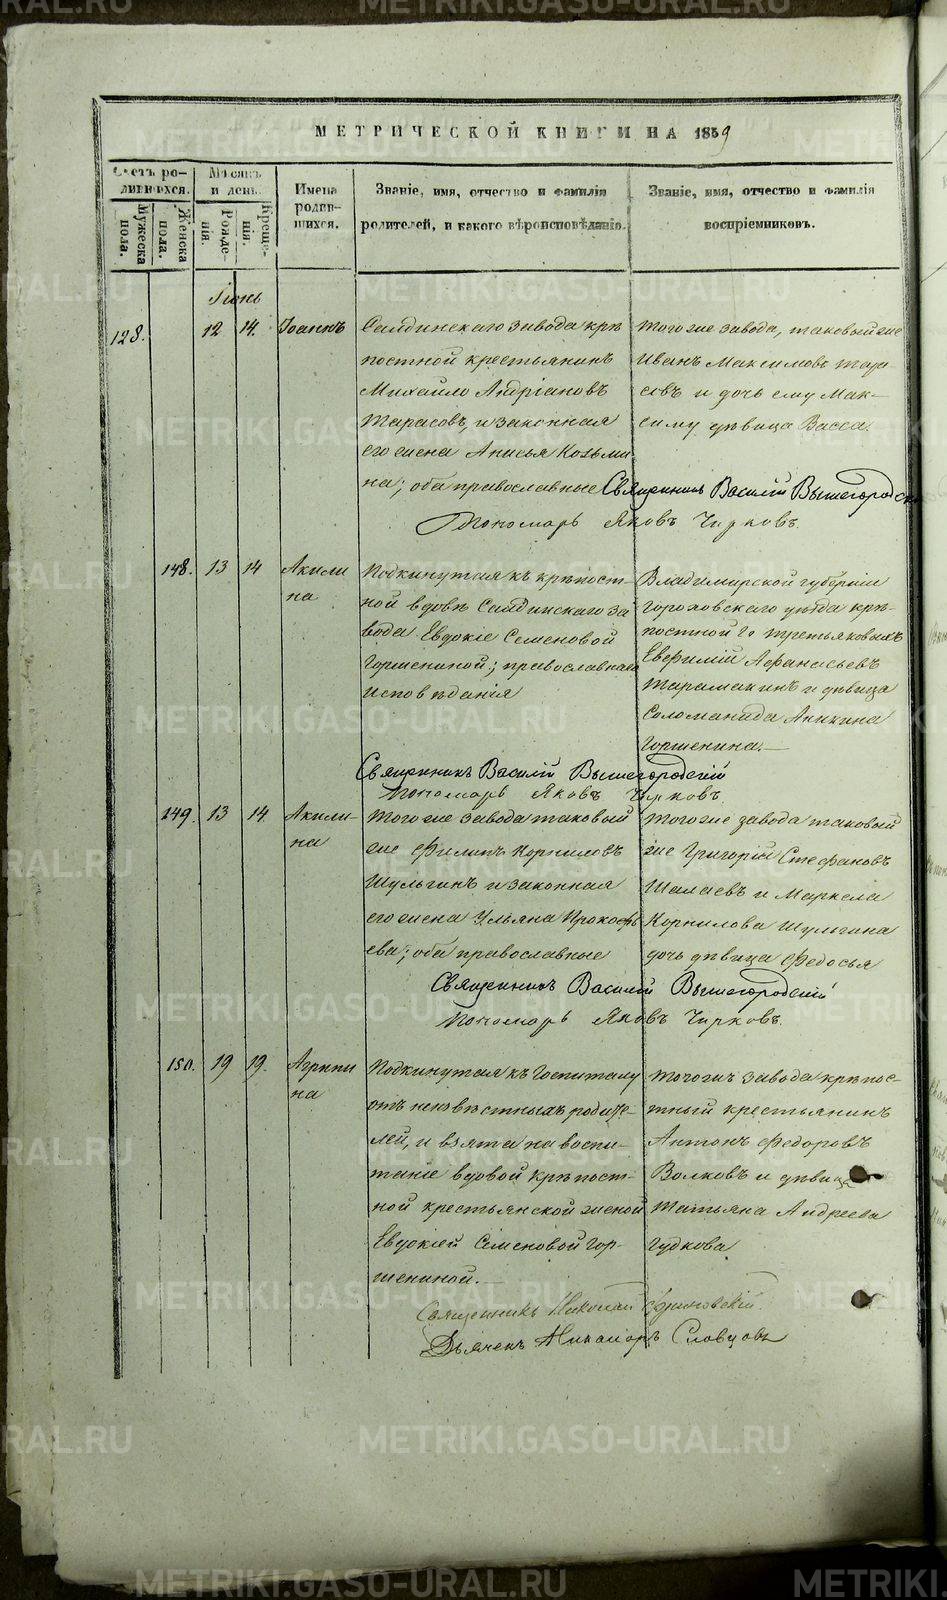 МЕТРИЧЕСКОЙ КНИГИ НА 1859
Счетъ ро-
дившихся.
Мѣсяцъ
и день.
Имена
родив-
шихся.
Званіе, имя, отчество и фамилія
родителей, и какого вѣроисповѣданія.
Званіе, имя, отчество и фамилія
воспріемниковъ.
Мужеска
пола.
Женска
пола.
Рожде-
нія.
Креще-
нія.
Іюнь
128. 12 14. Іоаннъ
Салдинскаго завода крѣ
постной крестьянинъ
Михайло Андріановъ
Тарасовъ, и законная
его жена Анисья Козьми
на; оба православные
Того же завода, таковый же
Иванъ Максимовъ Тара-
совъ и дочь ему Мак-
симу дѣвица Васса
Священникъ Василій Вышегородскій
Пономарь Яковъ Чирковъ
148. 13 14 Акили
на
Подкинутая къ крѣпост-
ной вдовѣ Салдинскаго за
вода Евдокіе Семеновой
Горшениной; православнаго
исповѣданія
Владимирской губерніи
Гороховскаго уѣзда крѣ-
постной Гг Третьяковыхъ
Евфимій Афанасьевъ
и дѣвица
Соломанида Аникина
Горшенина.
Священникъ Василій Вышегородскій
Пономарь Яковъ Чирковъ.
149. 13 14. Акили-
на
Того же завода таковый
же Филипъ Корниловъ
Шульгинъ и законная
его жена Ульяна Прокофь
ева; оба православные
Того же завода таковый
же Григорій Стефановъ
Шалаевъ и Маркела
Корнилова Шульгина
дочь дѣвица Федосья
Священникъ Василій Вышегородскій
Пономарь Яковъ Чирковъ.
150. 19 19. Агрипи
на
Подкинутая къ Госпиталу
отъ неизвѣстныхъ родите-
лей, и взята на воспи-
таніе вдовой крѣпост-
ной крестьянской женой
Евдокіей Семеновой Гор-
шениной.
Того же завода крѣпос-
тный крестьянинъ
Антонъ Федоровъ
Волковъ и дѣвица
Татьяна Андреева
Гудкова
Священникъ Николай
Дьячекъ Никаноръ Словцовъ
METRIKI.GASO-URAL.RU